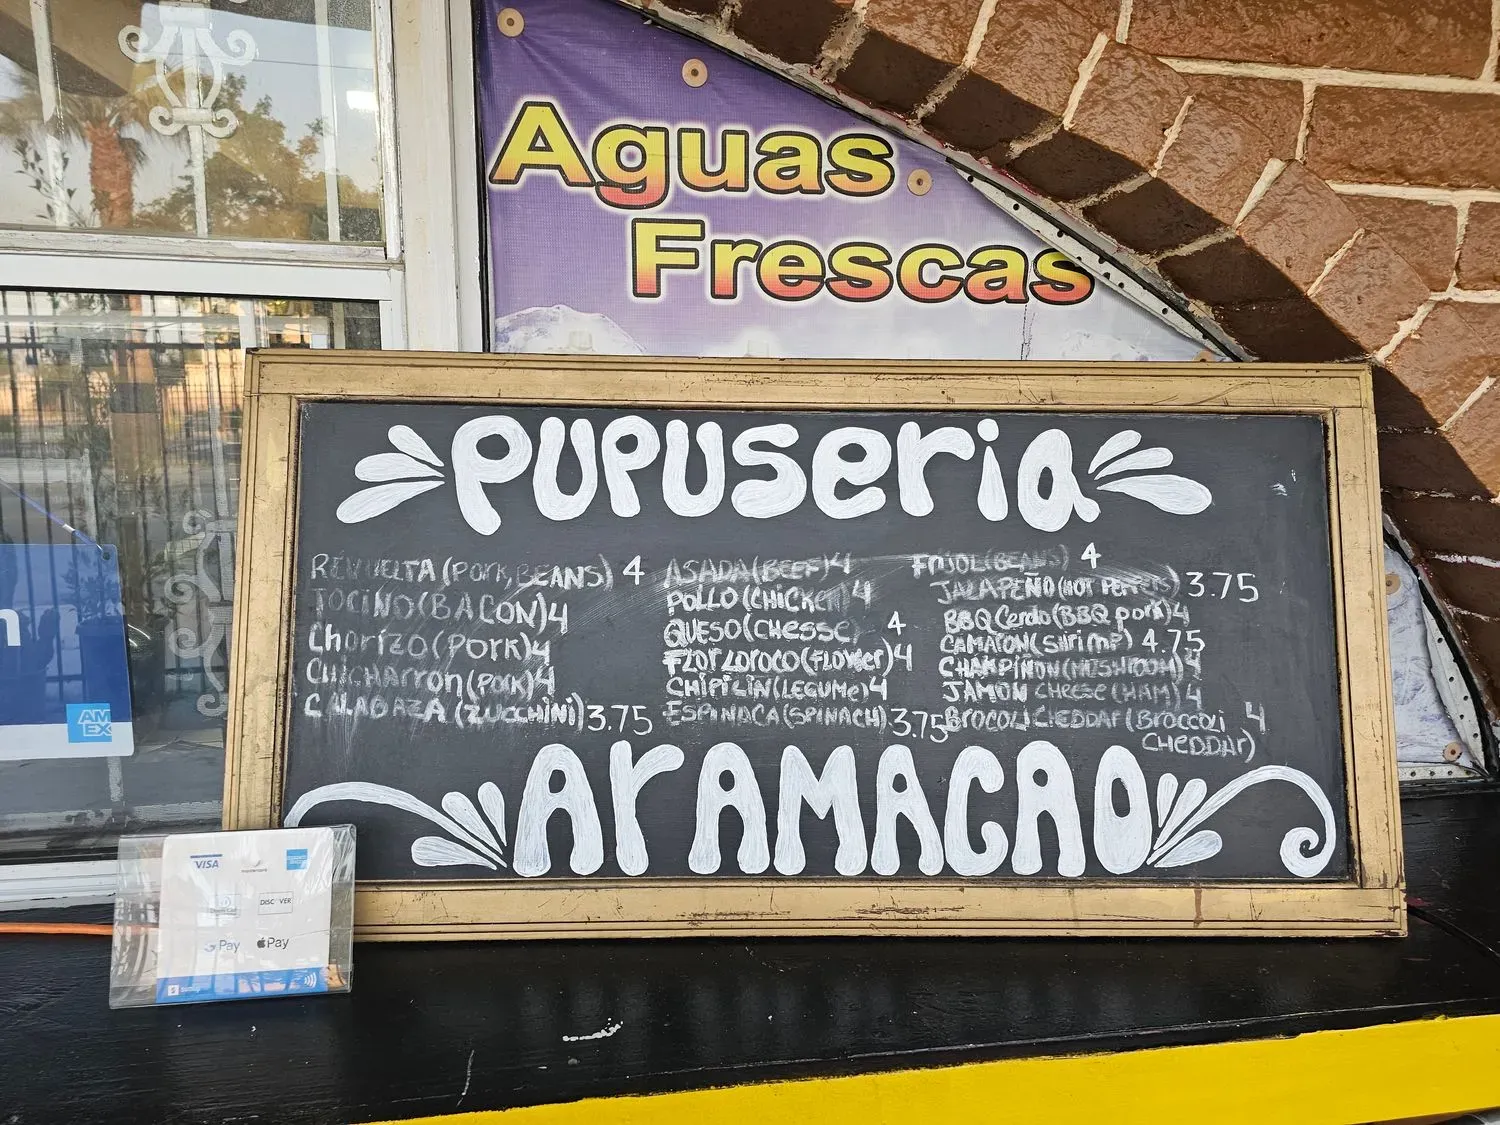 Aguas
Frescas
PUPUSERIA
REVUELTA (PORK, BEANS) 4
TOCINO (BACON) 4
Chorizo (PORK) 4
CHICHArron (POrK) 4
CALABAZA (ZUCCHINI) 3.75
ASADA (BEEF) 4
POLLO (CHICKEN) 4
QUESO (CHESSE) 4
FLOr LOrOCO (FLOWer) 4
CHIPILIN (LEGUMe) 4
ESPINACA (SPINACH) 3.75
FrIJOL (BEANS) 4
JALAPEÑO (HOT PEPPErS) 3.75
BBQ Cerdo (BBQ pork) 4
CAMArON (Shrimp) 4.75
CHAMPIÑON (MUSHROOM) 4
JAMON CHeese (HAM) 4
BrOCOLI CHEDDAr (Broccoli 4
CHeDDAr)
ArAMACAO
n
AM
EX
VISA
DISCOVER
Pay
Pay